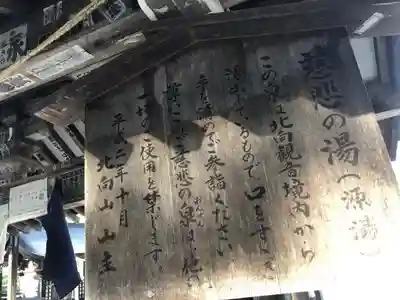 慈悲の湯(源湯)
この泉は北向観音境内から
湧出ているもので口をすすぎ
手を清めてご参詣ください
尚この慈悲の泉は他に
一切のご使用を禁じます。
平成二年十月
北向山 山主